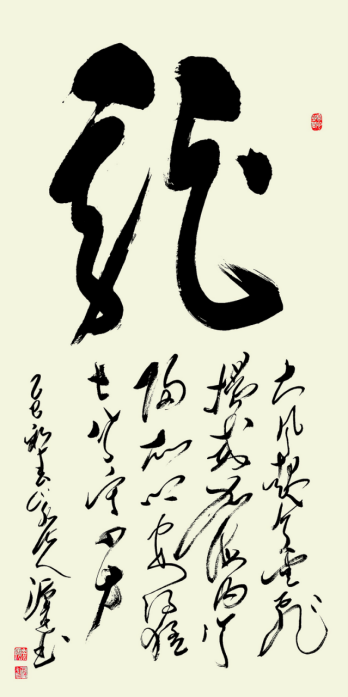 龍
大風起兮雲飛
揚威加海内兮
歸故鄉安得猛
士兮守四方
乙巳初春